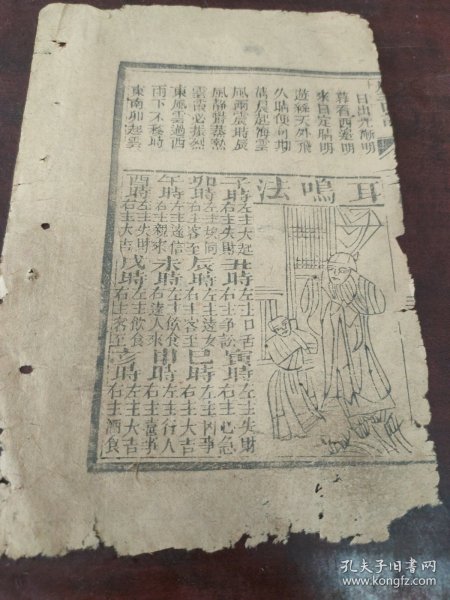 日出光漸明
暮看西邊明
來日定晴明
遊絲天外飛
久晴便可期
清晨起海雲
風雨震時辰
風靜鬱蒸熱
雲雷必振烈
東風雲過西
雨下不移時
東南卯起雲
耳鳴法
子時左主大右主失財丑時左主口舌右主爭訟寅時左主失財右主心急
卯時左主右主客至辰時左主遠右主客至巳時左主凶事右主大吉
午時左主遠信右主親來未時左主飲食右遠人來申時左主行人右主喜事
酉時左主失財右主大吉戌時左主飲食右主客至亥時左主大吉右主酒食
孔夫子旧书网
www.kongfz.com